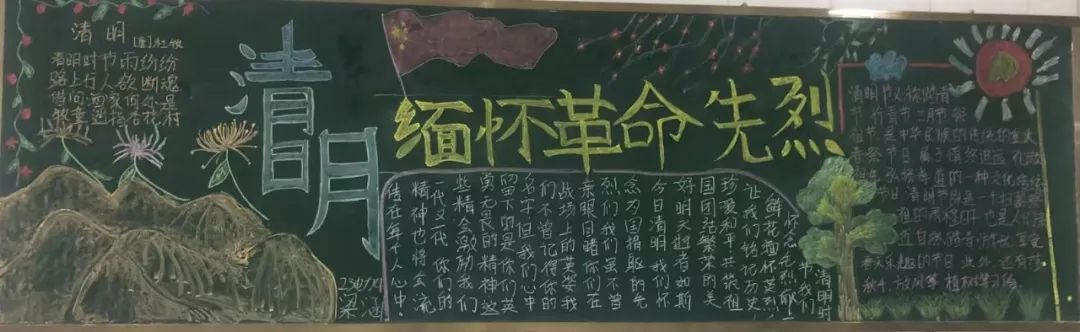 清明 [唐]杜牧
清明时节雨纷纷
路上行人欲断魂
借问酒家何处是
牧童遥指杏花村
清明
缅怀革命先烈
清明时
节我们
怀念先烈献上
鲜花缅怀英烈
让我们铭记历史
珍爱和平共筑祖
国团结繁荣的美
好明天逝者如斯
今日清明我们怀
念为国捐躯的先
烈们我们虽不曾
亲眼目睹你们在
战场上的英姿我
们不曾记得你的
名字但我们心中
留下的是你们英
勇无畏的精神这
些精神会激励我们
一代又一代你们的
精神也将会流
传在每个人心中
梁涵
清明节又称踏青
节 行青节 三月节 祭
祖节 是中华民族的传统的重大
春祭节日 属于慎终追远 礼敬
祖先 弘扬孝道的一种文化传统
节日 清明节既是一个扫墓祭
祖的肃穆 也是人们
近自然 踏青 享受
春天乐趣的节日 此外 还有荡
秋千 放风筝 植树等习俗